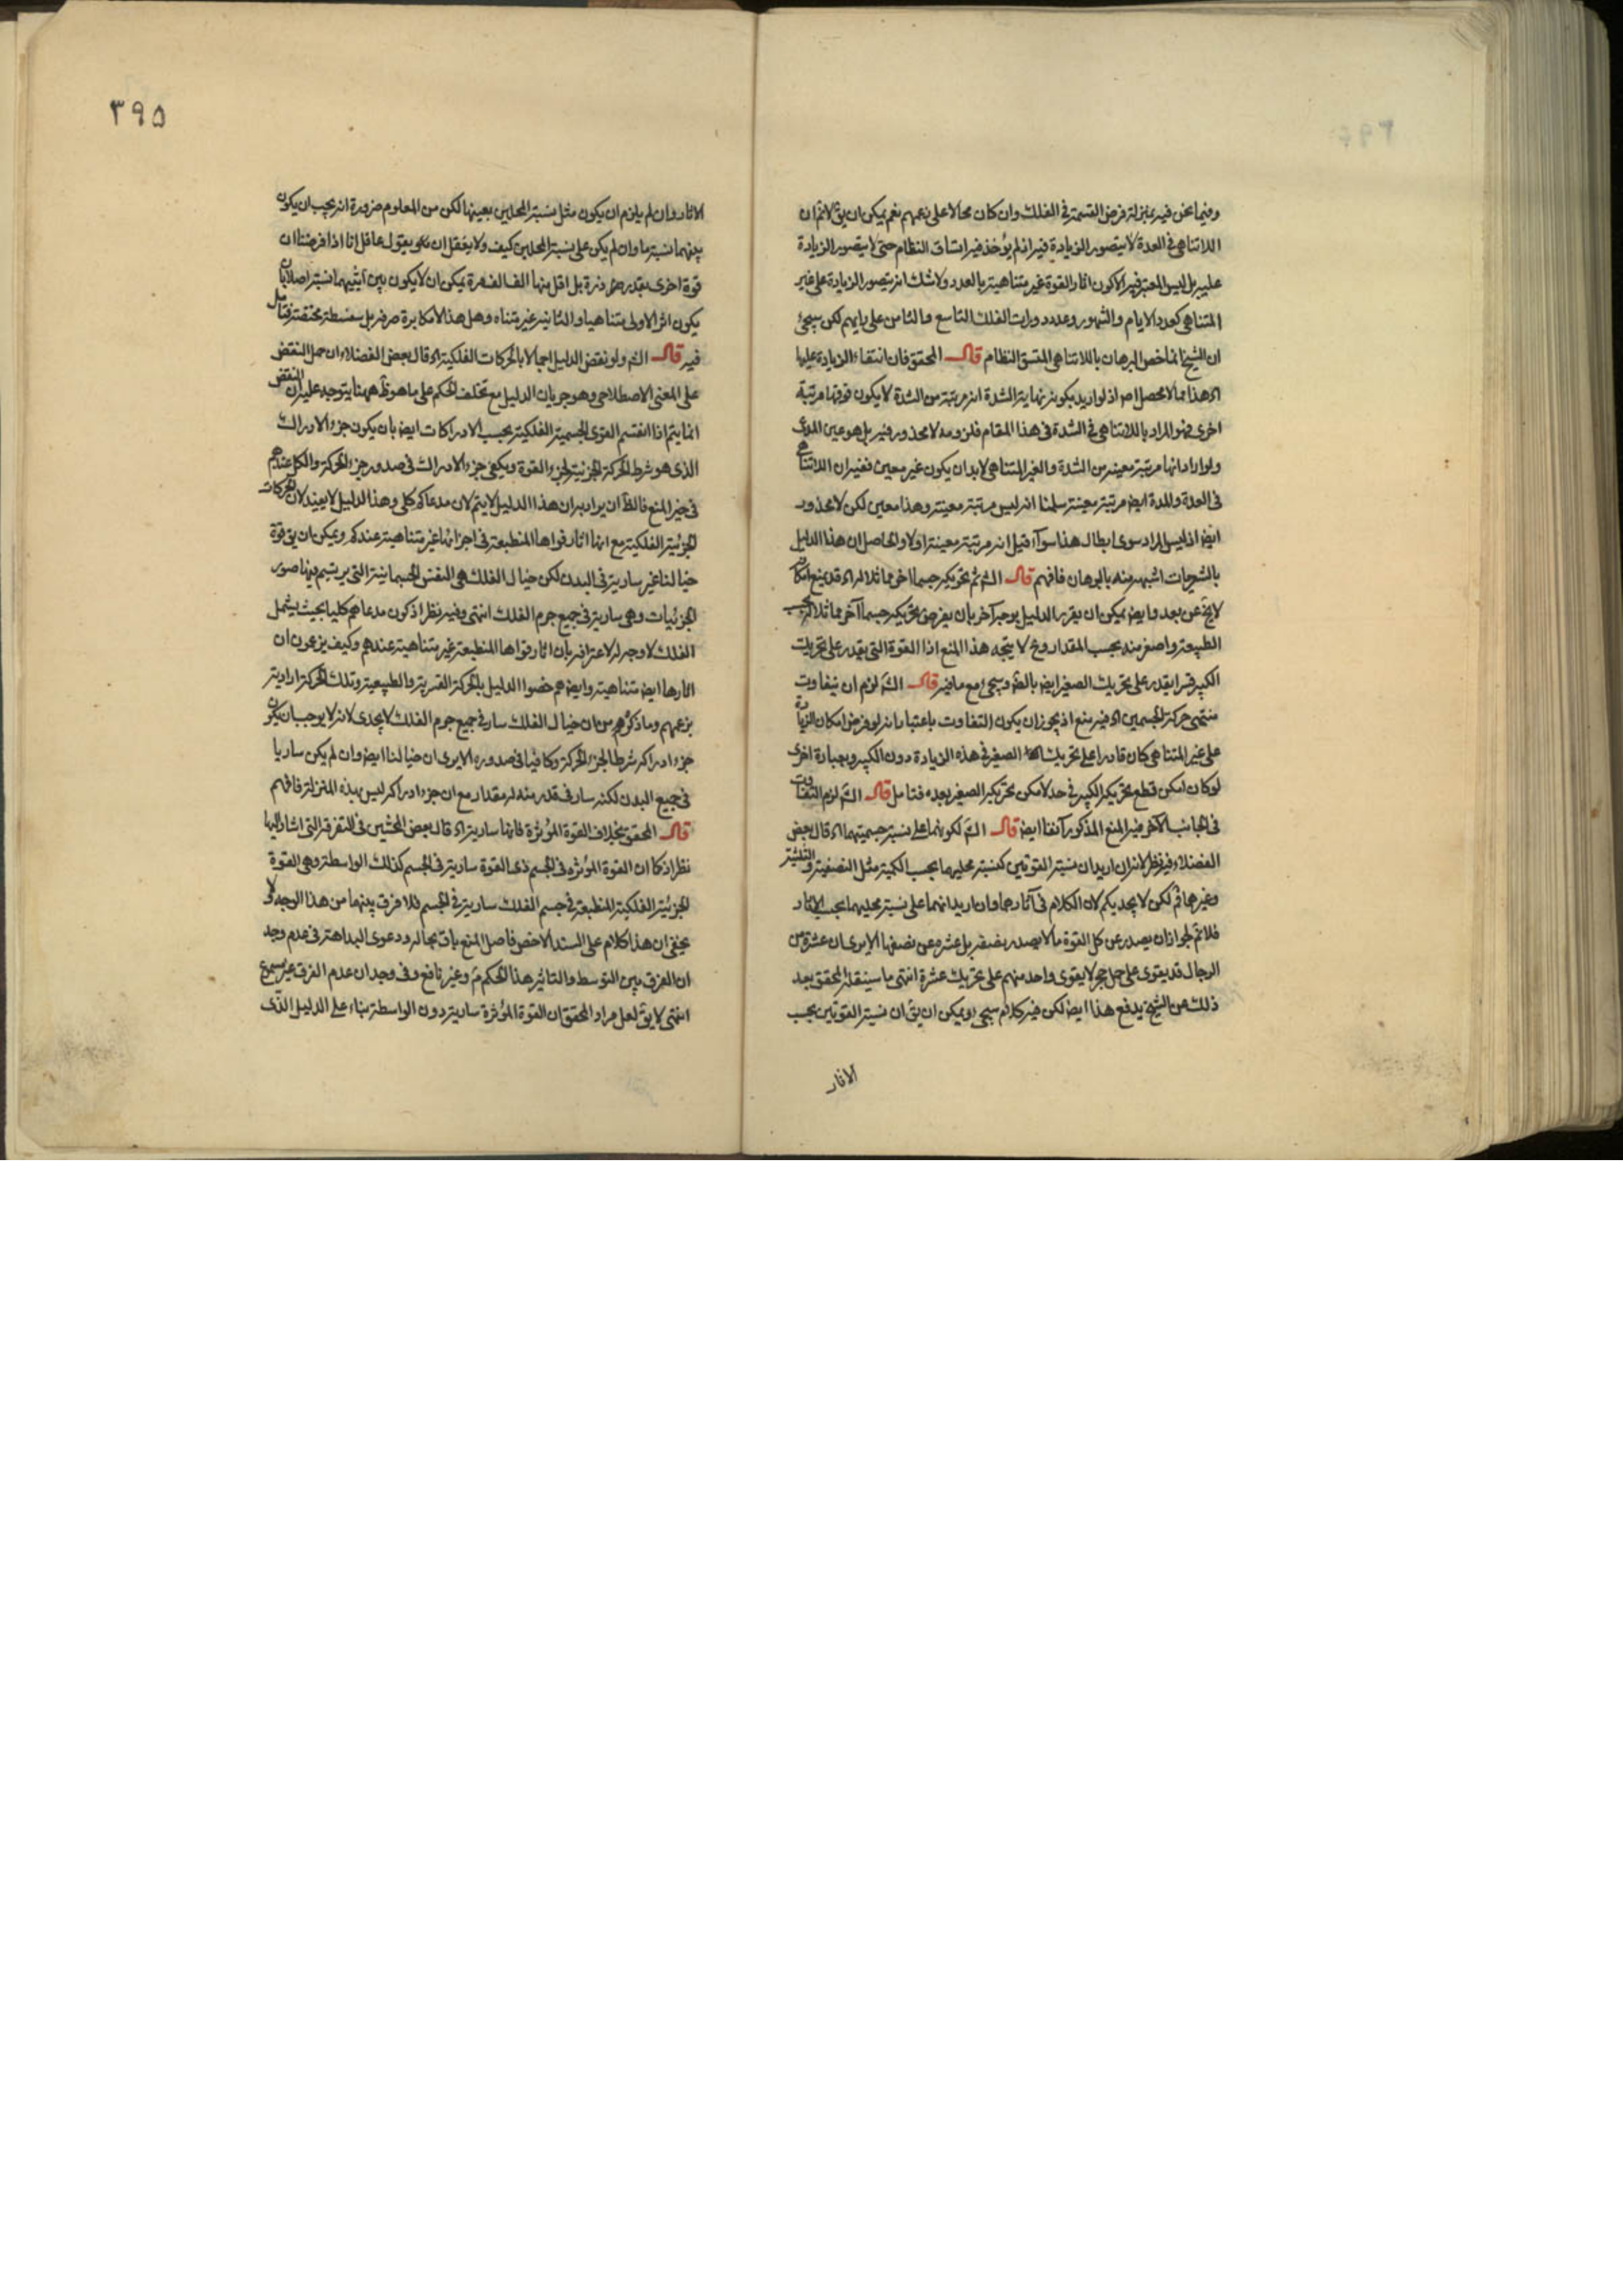 وفيما نحن فيه بمنزلة فرض القسمة في الفلك وان كان محالا على زعمهم نعم يمكن ان يق لانم ان
اللاتناهى في العدة لا يتصور الزيادة فيه اذ لم يؤخذ فيه اتساق النظام حتى لا يتصور الزيادة
عليه بل ليس المعتبر فيه الا كون اثار القوة غير متناهية بالعدد ولا شك انه يتصور الزيادة على غير
المتناهى كعدد الايام والشهور وعدد دورات الفلك التاسع والثامن على رايهم لكن سيجئ
ان الشيخ انما خص البرهان باللاتناهى المتسق النظام قال المحقق فان انتفاء الزيادة عليها
اه هذا مما لا محصل له اذ لو اريد بكونه نهاية الشدة انه مرتبة من الشدة لا يكون فوقها مرتبة
اخرى فهو المراد باللاتناهى في الشدة في هذا المقام فلزومه لا محذور فيه بل هو عين المدعى
ولو اراد انها مرتبة معينة من الشدة والغير المتناهى لابد ان يكون غير معين ففيه ان اللاتناهى
فى العدة والمدة ايض مرتبة معينة سلمنا انه ليس مرتبة معينة وهذا معين لكن لا محذور
ايض اذ ليس المراد سوى ابطال هذا سواء قيل انه مرتبة معينة اولا والحاصل ان هذا الدليل
بالشعريات اشبه منه بالبرهان فافهم قال الش ثم تحريكه جسما اخر مماثلا له اه قد يمنع امكان
لايخ عن بعد وايض يمكن ان يقرر الدليل بوجه آخر بان يفرض تحريكه جسما آخر مماثلا له بحسب
الطبيعة واصغر منه بحسب المقدار وح لا يتجه هذا المنع اذا القوة التى يقدر على تحريك
الكبير قسرا يقدر على تحريك الصغير ايض بالض وسيجئ مع ما فيه قال الش لزم ان يتفاوت
منتهى حركة الجسمين اه فيه منع اذ يجوز ان يكون التفاوت باعتبار انه لو فرض امكان الزيادة
على غير المتناهى كان قادرا على تحريك الصغير في هذه الزيادة دون الكبير وبعبارة اخرى
لو كان امكن قطع تحريكه الكبير في حد لامكن تحريكه الصغير بعده فتامل قال الش لزم التفاوت
فى الجانب الآخر فيه المنع المذكور آنفا ايض قال الش لكونهما على نسبة جسميتهما اه قال بعض
الفضلاء فيه نظر لانه ان اريد ان نسبة القوتين كنسبة محليهما بحسب الكمية مثل النصفية والثلثية
وغيرهما فم لكن لا يجديكم لان الكلام فى آثارهما وان اريد انهما على نسبة محليهما بحسب الاثار
فلانم لجواز ان يصدر عن كل القوة ما لا يصدر نصفه بل عشره عن نصفها الا يرى ان عشرة من
الرجال قد يقوى على حمل حجر لا يقوى واحد منهم على تحريك عشره انتهى ما سينقله المحقق بعد
ذلك عن الشيخ يدفع هذا ايض لكن فيه كلام سيجئ ويمكن ان يق ان نسبة القوتين بحسب
الاثار
٣٩٥
الاثار وان لم يلزم ان يكون مثل نسبة المحلين بعينها لكن من المعلوم ضرورة انه يجب ان يكون
بينهما نسبة ما وان لم يكن على نسبة المحلين كيف ولا يعقل ان يقول عاقل انا اذا فرضنا ان
قوة اخرى بقدر ذرة بل اقل منها الف الف مرة يمكن ان لا يكون بين اثريهما نسبة اصلا بان
يكون اثر الاولى متناهيا والثانية غير متناه وهل هذا الا مكابرة صرفة بل سفسطة محضة فتامل
فيه قال الش ولو نقض الدليل اجمالا بالحركات الفلكية اه قال بعض الفضلاء ان حمل النقض
على المعنى الاصطلاحى وهو جريان الدليل مع تخلف الحكم على ما هو ظ ههنا يتوجه عليه ان النقض
انما يتم اذا انقسم القوى الجسمية الفلكية بحسب الادراكات ايض بان يكون جزء الادراك
الذى هو شرط الحركة الجزئية لجزء القوة ويكفى جزء الادراك فى صدور جزء الحركة والكل عندهم
فى حيز المنع فالظ ان يراد به ان هذا الدليل لا يتم لان مدعاكم كلى وهذا الدليل لا يفيد لان الحركات
الجزئية الفلكية مع انها اثار قواها المنطبعة فى اجزائها غير متناهية عندكم ويمكن ان يق قوة
خيالنا غير سارية فى البدن لكن خيال الفلك هى النفس الجسمانية التى يرتسم فيها صور
الجزئيات وهى سارية فى جميع جرم الفلك انتهى وفيه نظر اذ كون مدعاهم كليا بحيث يشمل
الفلك لا وجه له لاعترافه بان اثار قواها المنطبعة غير متناهية عندهم وكيف يزعمون ان
اثارها ايض متناهية وايض هم خصوا الدليل بالحركة القسرية والطبيعية وتلك الحركة ارادية
بزعمهم وما ذكره من ان خيال الفلك سار فى جميع جرم الفلك لا يجدى لانه لا يوجب ان يكون
جزء ادراكه شرطا لجزء الحركة وكافيا فى صدوره الا يرى ان خيالنا ايض وان لم يكن ساريا
فى جميع البدن لكنه سار فى قدر منه له مقدار مع ان جزء ادراكه ليس بهذه المنزلة فافهم
قال المحقق بخلاف القوة المؤثرة فانها سارية اه قال بعض المحشين فى التفرقة التى اشار اليها
نظر اذ كما ان القوة المؤثره فى الجسم ذى القوة سارية فى الجسم كذلك الواسطة وهى القوة
الجزئية الفلكية المنطبعة فى جسم الفلك سارية فى الجسم فلا فرق بينهما من هذا الوجه ولا
يخفى ان هذا كلام على السند الاخص فاصل المنع باق بحاله ودعوى البداهة فى عدم وجد
ان الفرق بين التوسط والتاثير هذا الحكم م وغير نافع وفى وجدان عدم الفرق غير مسموع
انتهى لا يق لعل مراد المحقق ان القوة المؤثرة سارية دون الواسطة بناء على الدليل الذى